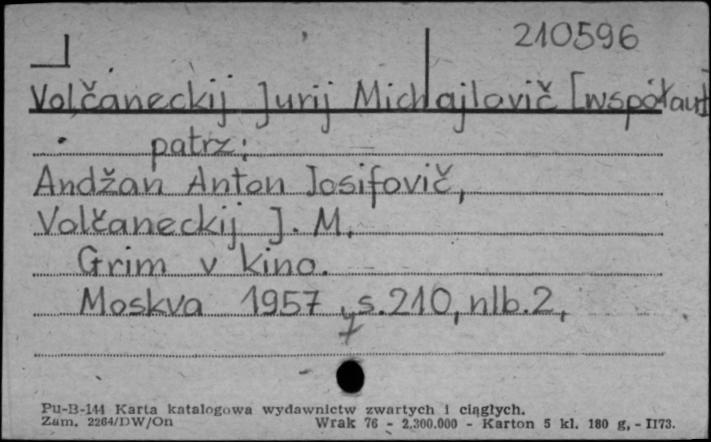 210596
Volčaneckij Jurij Michajlovič [współaut]
patrz:
Andžan Anton Iosifovič,
Volčaneckij J. M.
Grim v kino.
Moskva 1957, s. 210, nlb. 2,
Pu-B-144 Karta katalogowa wydawnictw zwartych i ciągłych.
Zam. 2264/DW/On Wrak 76 - 2.300.000 - Karton 5 kl. 180 g, - II73.